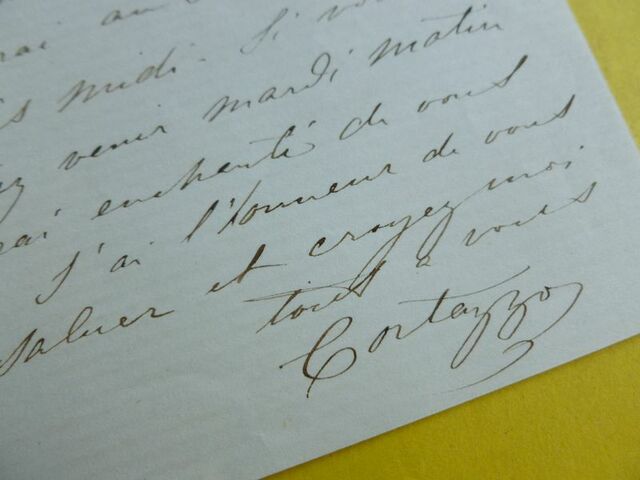 rai au
midi. Si vo
venir mardi matin
rai enchanté de vous
J'ai l'honneur de vous
saluer et croyez moi
tout à vous
Cortazzo